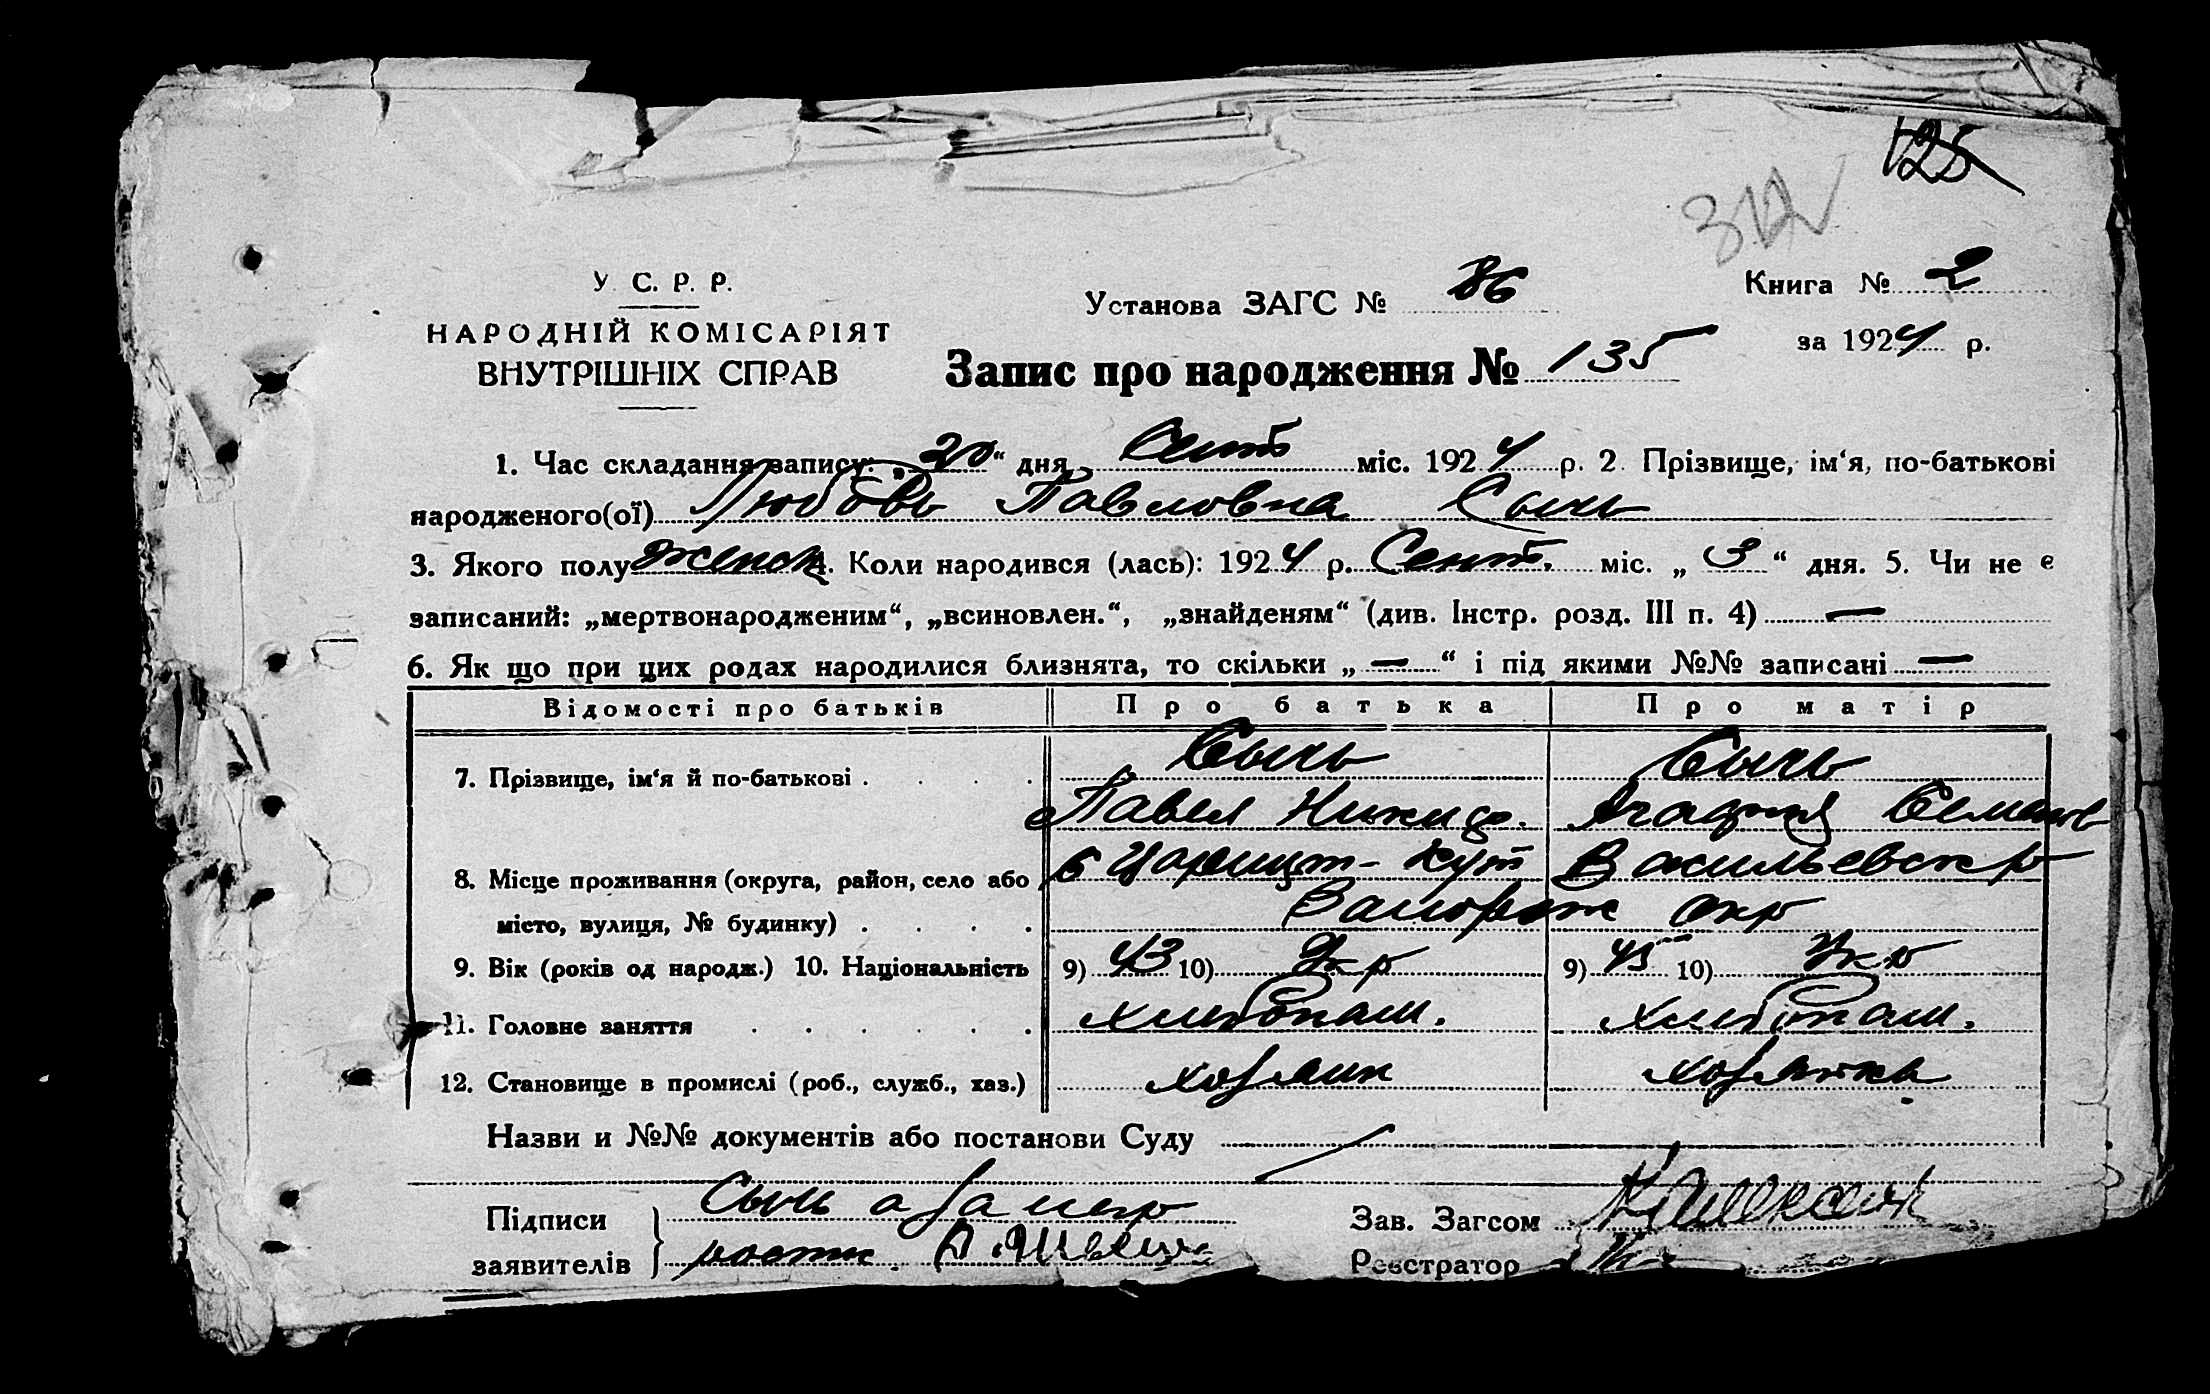 125
312
У. С. Р. Р.
НАРОДНІЙ КОМІСАРІЯТ
ВНУТРІШНІХ СПРАВ
Установа ЗАГС № 86
Книга № 2
за 1924 р.
Запис про народження № 135
1. Час складання запису: „20“ дня Сент міс. 1924 р. 2. Прізвище, ім‘я, по-батькові
народженого(ої) Любовь Павловна Сычь
3. Якого полу женск 4. Коли народився (лась): 1924 р. Сент. міс. „3“ дня. 5. Чи не є
записаний: „мертвонародженим“, „всиновлен.“, „знайденям“ (див. Інстр. розд. III п. 4) —
6. Як що при цих родах народилися близнята, то скільки „—“ і під якими №№ записані —
Відомості про батьків Про батька Про матір
7. Прізвище, ім‘я й по-батькові . . . . Сычь Сычь
Павел Никиф. Агафия Семенов
8. Місце проживання (округа, район, село або с Царицт-Кут Васильевск р
місто, вулиця, № будинку) . . . . Запорож окр
9. Вік (років од народж.) 10. Національність 9) 43 10) Укр 9) 45 10) Укр
11. Головне заняття . . . . . . хлибопаш. хлибопаш.
12. Становище в промислі (роб., служб., хаз.) хозяин хозяйка
Назви и №№ документів або постанови Суду
Підписи Сычь а за негр
заявителів
Зав. Загсом
Реєстратор